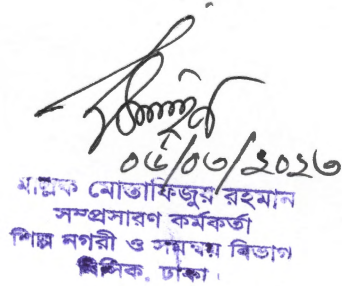 ০৫/০৩/২০২৩
মোতাফিজুর রহমান
সম্প্রসারণ কর্মকর্তা
শিল্প নগরী ও সমন্বয় বিভাগ
বিসিক, ঢাকা।